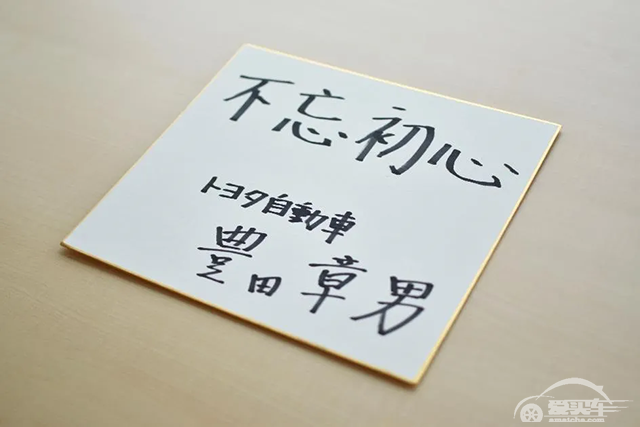 不忘初心
トヨタ自動車
豊田章男
爱买车
amaiche.com